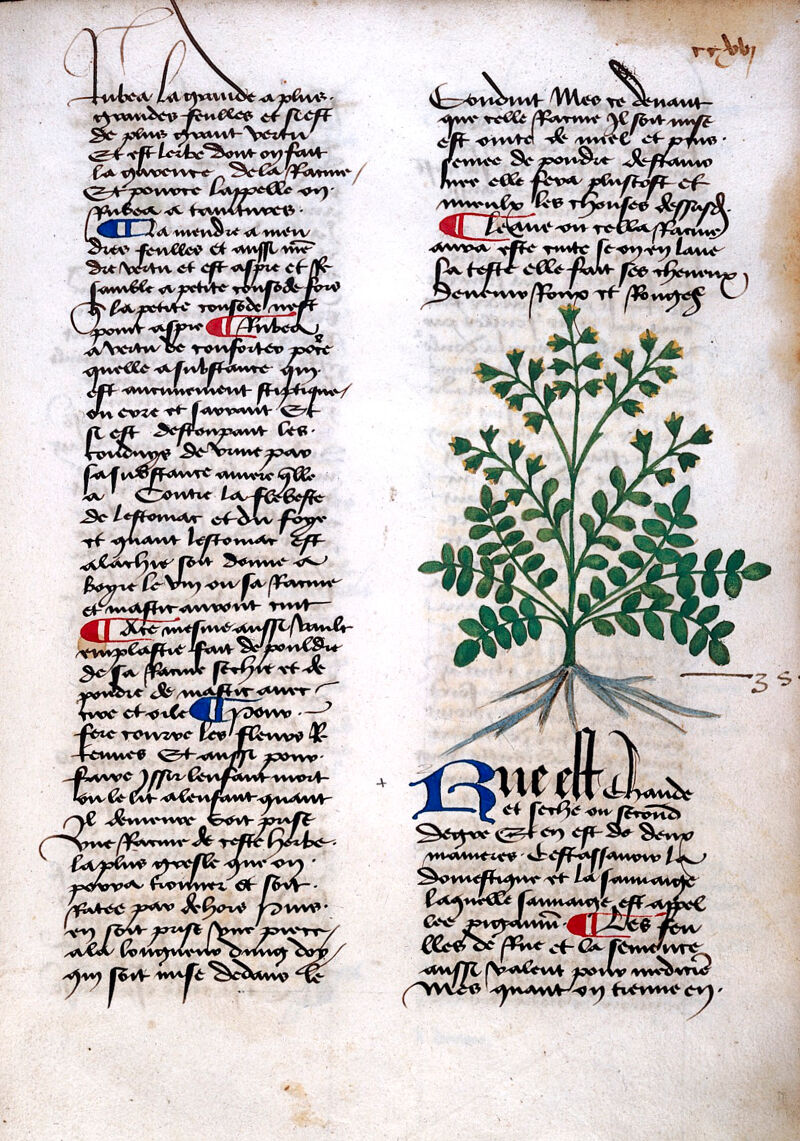 ccxvi
Rubea la grande a plus
grandes feulles et si est
de plus grant vertu
Et est lerbe dont on fait
la garence de la Racine
Et pource lappelle on
Rubea a taintures
La mendre a men
dres feulles et aussi mē
dre vertu et est aspre et Re
samble a petite consode fors
q̄ la petite consode nest
point aspre Rubea
a vertu de conforter
quelle a substance qui
est aucunement stiptique
on eure et savant Et
si est destoupant les
conduys de urine par
sa substance amere q̄lle
a Contre la flebeste
de lestomac et du foye
et quant lestomac est
alachie soit donne a
boyre le vin ou sa Racine
et mastic auront cuit
A ce mesme aussi vault
emplastre fait de pouldre
de sa Racine sechie et de
poudre de mastic avec
cire et oile Pour
fere courre les fleurs Re
tenues Et aussi pour
faire yssir lenfant mort
ou le lit a lenfant quant
Il demeure soit prise
une Racine de ceste herbe
la plus gresle que on
pourra trouver et soit
Ratee par dehors Puis
en soit prise une piece
a la longueur dung doy
qui soit mise dedans le
Conduit Mes ce devant
que celle Racine Il soit mise
est ointe de miel et puis
semee de poudre
elle fera plustost et
mieulx les chouses dessusd.
Leaue ou cella Racine
aura este cuite se on en lave
la teste elle fait ses cheveux
devenir Roux et Rouges
3 s.
Rue est Chaude
et seche ou second
degre Et en est de deux
manieres Cestassavoir la
domestique et la sauvaige
laquelle sauvaige est appel
lee piganiū Les feu
lles de Rue et la semence
aussi valent pour medicīe
Mes quant on tienne en